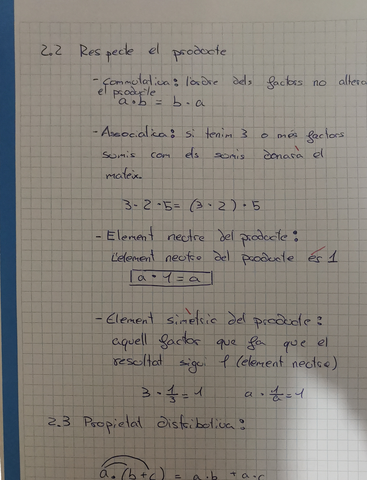 2.2 Respecte el producte
- Commutativa: l'ordre dels factors no altera
el producte
a·b = b·a
- Associativa: si tenim 3 o més factors
sumis com els sumis donarà el
mateix.
3·2·5 = (3·2)·5
- Element neutre del producte:
L'element neutre del producte és 1
a·1 = a
- Element simètric del producte:
aquell factor que fa que el
resultat sigui 1 (element neutre)
3·1/3 = 1 a·1/a = 1
2.3 Propietat distributiva:
a·(b+c) = a·b + a·c